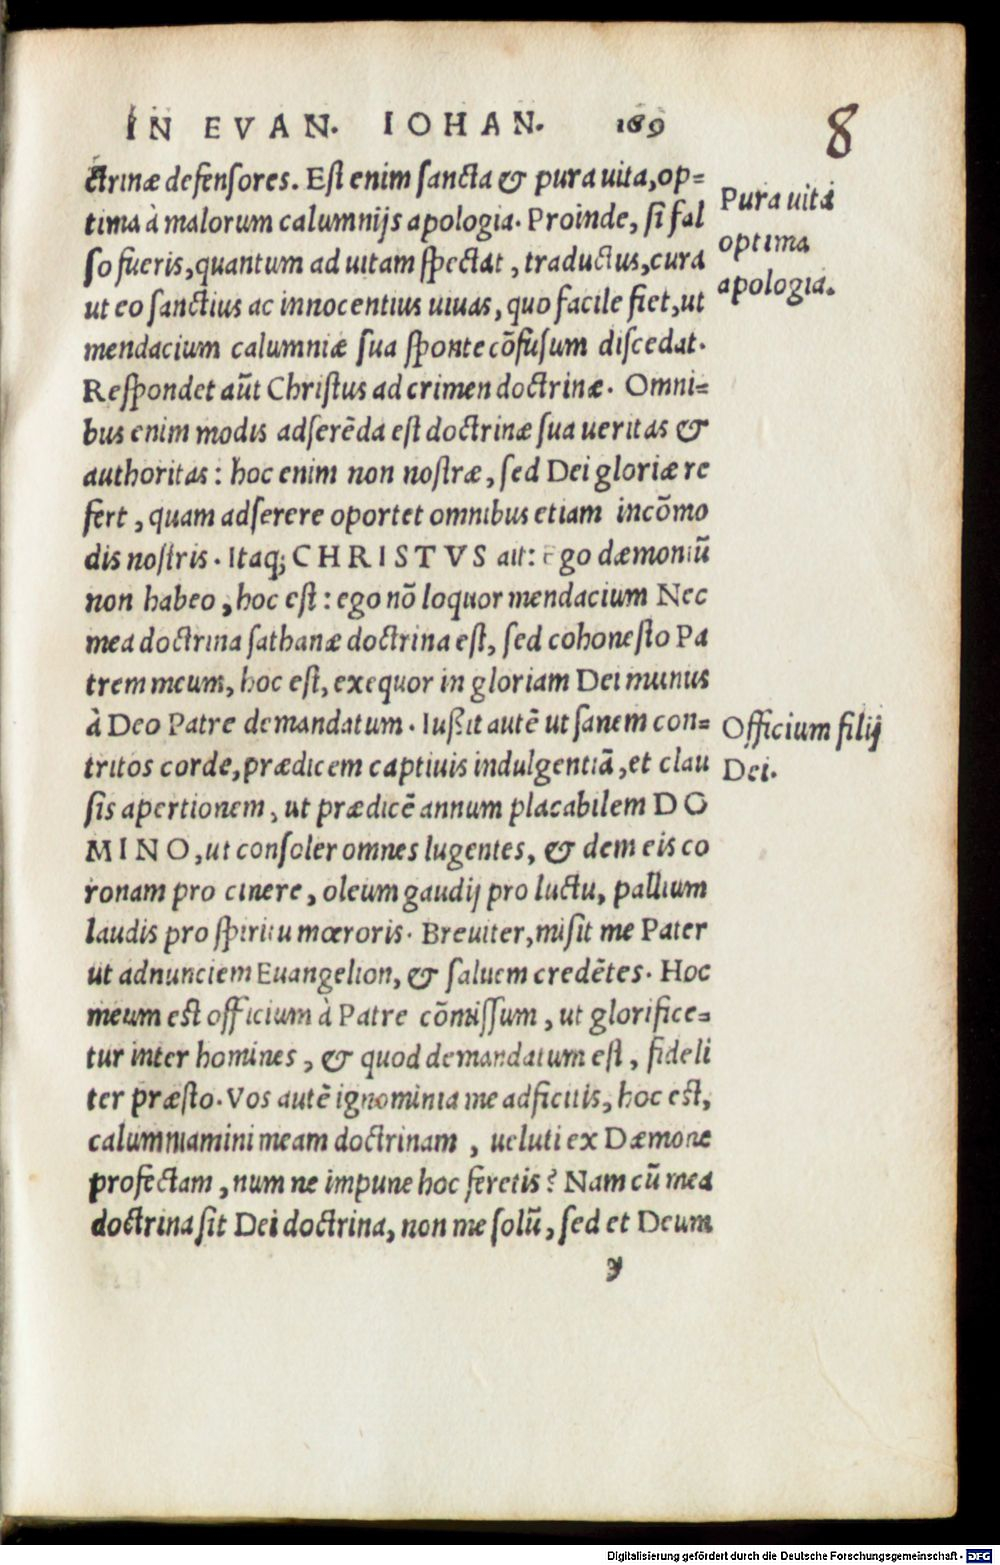 IN EVAN. IOHAN. 169
8
ctrinæ defensores. Est enim sancta & pura uita, op=
tima à malorum calumnijs apologia. Proinde, si fal
so fueris, quantum ad uitam spectat, traductus, cura
ut eo sanctius ac innocentius uiuas, quo facile fiet, ut
mendacium calumniæ sua sponte cõfusum discedat.
Respondet aũt Christus ad crimen doctrinæ. Omni=
bus enim modis adserẽda est doctrinæ sua ueritas &
authoritas: hoc enim non nostræ, sed Dei gloriæ re
fert, quam adserere oportet omnibus etiam incõmo
dis nostris. Itaq; CHRISTVS ait: Ego dæmoniũ
non habeo, hoc est: ego nõ loquor mendacium Nec
mea doctrina sathanæ doctrina est, sed cohonesto Pa
trem meum, hoc est, exequor in gloriam Dei munus
à Deo Patre demandatum. Iußit autẽ ut sanem con=
tritos corde, prædicem captiuis indulgentiã, et clau
sis apertionem, ut prædicẽ annum placabilem DO
MINO, ut consoler omnes lugentes, & dem eis co
ronam pro cinere, oleum gaudij pro luctu, pallium
laudis pro spiritu mœroris. Breuiter, misit me Pater
ut adnunciem Euangelion, & saluem credẽtes. Hoc
meum est officium à Patre cõmissum, ut glorifice=
tur inter homines, & quod demandatum est, fideli
ter præsto. Vos autẽ ignominia me adficitis, hoc est,
calumniamini meam doctrinam, ueluti ex Dæmone
profectam, num ne impune hoc feretis? Nam cũ mea
doctrina sit Dei doctrina, non me solũ, sed et Deum
y
Pura uita
optima
apologia.
Officium filij
Dei.
Digitalisierung gefördert durch die Deutsche Forschungsgemeinschaft - DFG